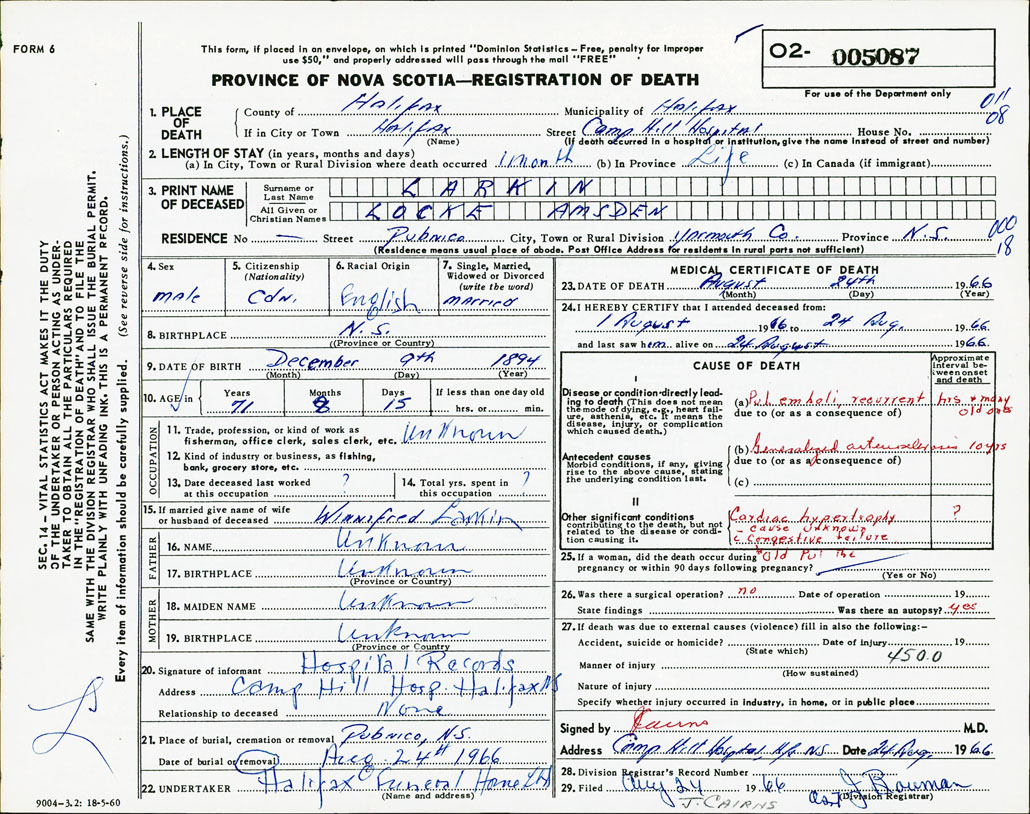 FORM 6
This form, if placed in an envelope, on which is printed "Dominion Statistics – Free, penalty for improper
use $50," and properly addressed will pass through the mail "FREE"
O2- 005087
For use of the Department only
PROVINCE OF NOVA SCOTIA—REGISTRATION OF DEATH
011
08
1. PLACE OF DEATH
County of Halifax Municipality of Halifax
If in City or Town Halifax Street Camp Hill Hospital House No.
(Name) (If death occurred in a hospital or institution, give the name instead of street and number)
2. LENGTH OF STAY (in years, months and days)
(a) In City, Town or Rural Division where death occurred 1 month (b) In Province Life (c) In Canada (if immigrant)
3. PRINT NAME OF DECEASED
Surname or Last Name LARKIN
All Given or Christian Names LOCKE AMSDEN
RESIDENCE No — Street Pubnico City, Town or Rural Division Yarmouth Co. Province N.S.
(Residence means usual place of abode. Post Office Address for residents in rural parts not sufficient)
000
18
4. Sex
male
5. Citizenship (Nationality)
Cdn.
6. Racial Origin
English
7. Single, Married, Widowed or Divorced (write the word)
married
8. BIRTHPLACE N.S.
(Province or Country)
9. DATE OF BIRTH December 9th 1894
(Month) (Day) (Year)
10. AGE in Years Months Days If less than one day old
71 8 15 hrs. or min.
OCCUPATION
11. Trade, profession, or kind of work as
fisherman, office clerk, sales clerk, etc. Unknown
12. Kind of industry or business, as fishing,
bank, grocery store, etc.
13. Date deceased last worked
at this occupation ?
14. Total yrs. spent in
this occupation ?
15. If married give name of wife
or husband of deceased Winnifred Larkin
FATHER
16. NAME Unknown
17. BIRTHPLACE Unknown
(Province or Country)
MOTHER
18. MAIDEN NAME Unknown
19. BIRTHPLACE Unknown
(Province or Country
20. Signature of informant Hospital Records
Address Camp Hill Hosp. Halifax NS
Relationship to deceased None
21. Place of burial, cremation or removal Pubnico, N.S.
Date of burial or removal) Aug. 24th 1966
22. UNDERTAKER Halifax Funeral Home Ltd
(Name and address)
MEDICAL CERTIFICATE OF DEATH
23. DATE OF DEATH August 24th 1966
(Month) (Day) (Year)
24. I HEREBY CERTIFY that I attended deceased from:
1 August 1966 to 24 Aug. 1966
and last saw him alive on 24 August 1966
CAUSE OF DEATH
Approximate interval between onset and death
I
Disease or condition directly leading to death (This does not mean
the mode of dying, e.g., heart failure, asthenia, etc. It means the
disease, injury, or complication
which caused death.)
(a) Pul emboli, recurrent hrs + many old ones
due to (or as a consequence of)
Antecedent causes
Morbid conditions, if any, giving
rise to the above cause, stating
the underlying condition last.
(b) Generalized 10 yrs
due to (or as a consequence of)
(c)
II
Other significant conditions
contributing to the death, but not
related to the disease or condition causing it.
Cardiac hypertrophy ?
- cause unknown
c Congestive failure
Old Pul
25. If a woman, did the death occur during
pregnancy or within 90 days following pregnancy?
(Yes or No)
26. Was there a surgical operation? no Date of operation 19
State findings Was there an autopsy? yes
27. If death was due to external causes (violence) fill in also the following:-
Accident, suicide or homicide? Date of injury 19
(State which)
450.0
Manner of injury
(How sustained)
Nature of injury
Specify whether injury occurred in industry, in home, or in public place
Signed by M.D.
Address Camp Hill Hospital, N.S. Date 24 Aug. 1966
28. Division Registrar's Record Number
29. Filed Aug 24 1966 J Bowman
(Division Registrar)
J. CAIRNS
SEC. 14 – VITAL STATISTICS ACT MAKES IT THE DUTY
OF THE UNDERTAKER OR PERSON ACTING AS UNDERTAKER TO OBTAIN ALL THE PARTICULARS REQUIRED
IN THE "REGISTRATION OF DEATH" AND TO FILE THE
SAME WITH THE DIVISION REGISTRAR WHO SHALL ISSUE THE BURIAL PERMIT.
WRITE PLAINLY WITH UNFADING INK. THIS IS A PERMANENT RECORD.
Every item of information should be carefully supplied. (See reverse side for instructions.)
9004-3.2: 18-5-60